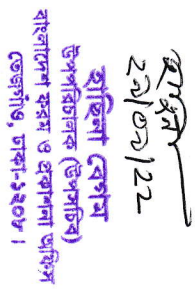 ২১/০১/২২
রাহিলা বেগম
উপপরিচালক (উপসচিব)
বাংলাদেশ ফরম ও প্রকাশনা অফিস
তেজগাঁও, ঢাকা-১২০৮।